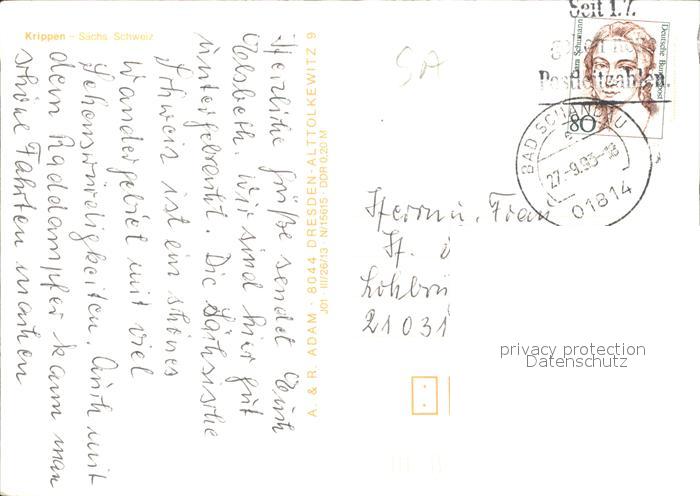 Krippen – Sächs. Schweiz
Herzliche Grüße sendet Euch
Elsbeth. Wir sind hier gut
untergebracht. Die Sächsische
Schweiz ist ein schönes
Wandergebiet mit viel
Sehenswürdigkeiten. Auch mit
dem Raddampfer kann man
schöne Fahrten machen
A. & R. ADAM · 8044 DRESDEN-ALTTOLKEWITZ 9
J01 · III/26/13 N/15615 · DDR 0,20 M
SA
Seit 1.7.
Postleitzahlen.
Clara Schumann
Deutsche Bundespost
80
BAD SCHANDAU
27-9.93-18
01814
Herrn u. Frau
H.
21031
privacy protection
Datenschutz